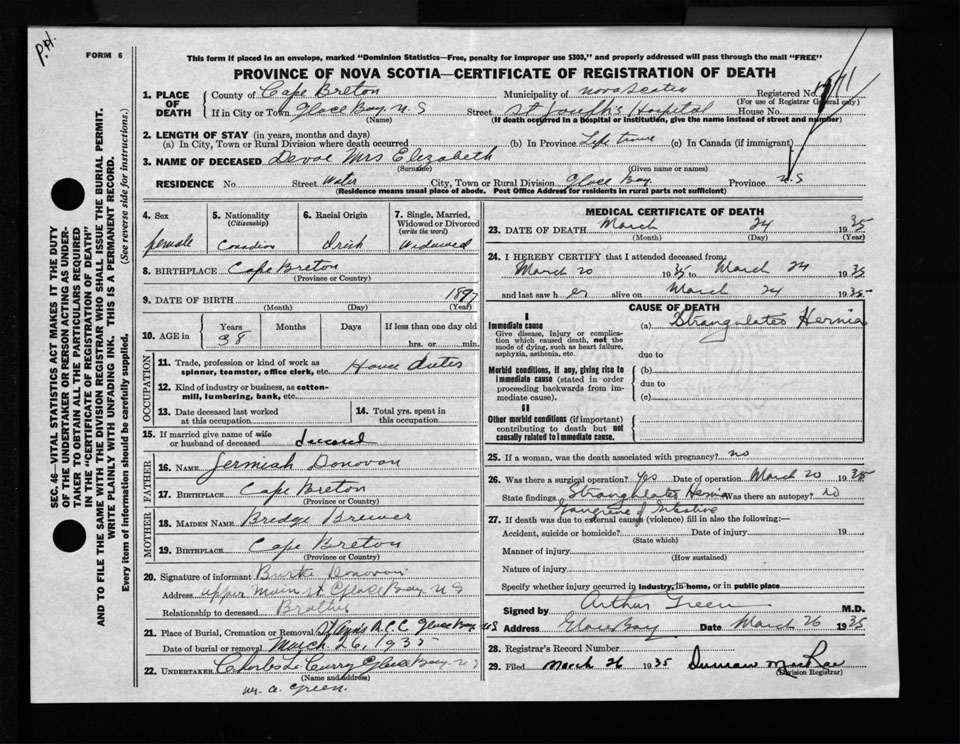 P.H.
FORM 6
This form if placed in an envelope, marked "Dominion Statistics—Free, penalty for improper use $300," and properly addressed will pass through the mail "FREE"
PROVINCE OF NOVA SCOTIA—CERTIFICATE OF REGISTRATION OF DEATH
1. PLACE OF DEATH
County of Cape Breton Municipality of Nova Scotia Registered No.
(For use of Registrar General only)
If in City or Town Glace Bay N.S Street St Joseph's Hospital House No.
(Name) (If death occurred in a hospital or institution, give the name instead of street and number)
2. LENGTH OF STAY (in years, months and days)
(a) In City, Town or Rural Division where death occurred (b) In Province Life time (c) In Canada (if immigrant)
3. NAME OF DECEASED Devoe Mrs Elizabeth
(Surname) (Given name or names)
RESIDENCE No. Street Water City, Town or Rural Division Glace Bay Province N.S
(Residence means usual place of abode. Post Office Address for residents in rural parts not sufficient)
4. Sex female
5. Nationality (Citizenship) Canadian
6. Racial Origin Irish
7. Single, Married, Widowed or Divorced (write the word) Widowed
8. BIRTHPLACE Cape Breton
(Province or Country)
9. DATE OF BIRTH 1897
(Month) (Day) (Year)
10. AGE in Years 38 Months Days If less than one day old hrs. or min.
OCCUPATION
11. Trade, profession or kind of work as spinner, teamster, office clerk, etc. House duties
12. Kind of industry or business, as cotton-mill, lumbering, bank, etc.
13. Date deceased last worked at this occupation
14. Total yrs. spent in this occupation
15. If married give name of wife or husband of deceased deceased
FATHER
16. NAME Jermiah Donovan
17. BIRTHPLACE Cape Breton
(Province or Country)
MOTHER
18. MAIDEN NAME Bredge Brewer
19. BIRTHPLACE Cape Breton
(Province or Country)
20. Signature of informant Donovan
Address upper Main st Glace Bay N S
Relationship to deceased Brother
21. Place of Burial, Cremation or Removal St Anns R.C.C Glace Bay N S
Date of burial or removal March 26, 1935
22. UNDERTAKER Curry Glace Bay N S
(Name and address)
Green.
MEDICAL CERTIFICATE OF DEATH
23. DATE OF DEATH March 24 1935
(Month) (Day) (Year)
24. I HEREBY CERTIFY that I attended deceased from:
March 20 1935 to March 24 1935
and last saw her alive on March 24 1935
CAUSE OF DEATH
I
Immediate cause
Give disease, injury or complication which caused death, not the mode of dying, such as heart failure, asphyxia, asthenia, etc.
(a) Strangulated Hernia
due to
Morbid conditions, if any, giving rise to immediate cause (stated in order proceeding backwards from immediate cause).
(b)
due to
(c)
II
Other morbid conditions (if important) contributing to death but not causally related to immediate cause.
25. If a woman, was the death associated with pregnancy? no
26. Was there a surgical operation? Yes Date of operation March 20 1935
State findings Strangulated Hernia Was there an autopsy? no
Gangrene of Intestine
27. If death was due to external causes (violence) fill in also the following:—
Accident, suicide or homicide? Date of injury 19
(State which)
Manner of injury
(How sustained)
Nature of injury
Specify whether injury occurred in industry, in home, or in public place
Signed by Arthur Green M.D.
Address Glace Bay Date March 26 1935
28. Registrar's Record Number
29. Filed March 26 1935 Duncan MacRae
(Division Registrar)
SEC. 46—VITAL STATISTICS ACT MAKES IT THE DUTY
OF THE UNDERTAKER OR PERSON ACTING AS UNDER-
TAKER TO OBTAIN ALL THE PARTICULARS REQUIRED
IN THE "CERTIFICATE OF REGISTRATION OF DEATH"
AND TO FILE THE SAME WITH THE DIVISION REGISTRAR WHO SHALL ISSUE THE BURIAL PERMIT.
WRITE PLAINLY WITH UNFADING INK. THIS IS A PERMANENT RECORD.
Every item of information should be carefully supplied. (See reverse side for instructions.)